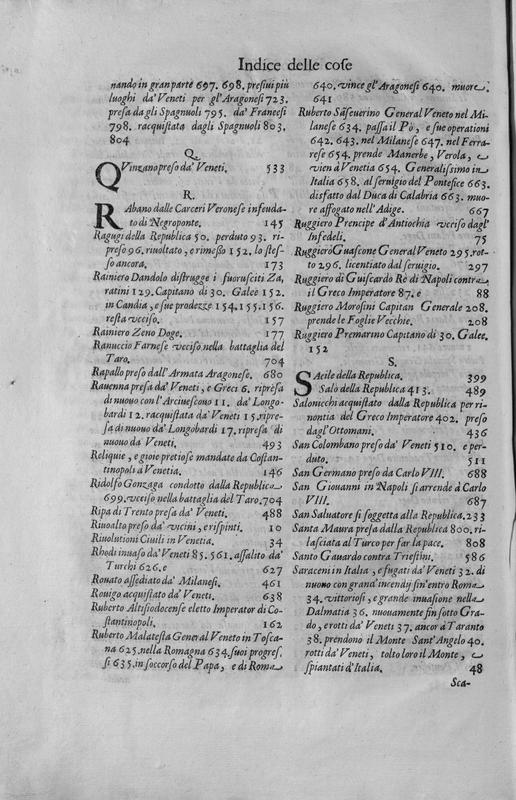 Indice delle cose
nando in gran parte 697. 698. presiui più
luoghi da' Veneti per gl'Aragonesi 723.
presa dagli Spagnuoli 795. da' Francesi
798. racquistata dagli Spagnuoli 803.
804
Q.
QVinzano preso da' Veneti. 533
R.
RAbano dalle Carceri Veronese infeuda-
to di Negroponte. 145
Ragugi della Republica 50. perduto 93. ri-
preso 96. riuoltato, e rimesso 152. lo stes-
so ancora. 173
Rainiero Dandolo distrugge i fuorusciti Za,
ratini 129. Capitano di 30. Galee 152.
in Candia, e sue prodezze 154. 155. 156.
resta vcciso. 157
Rainiero Zeno Doge. 177
Ranuccio Farnese vcciso nella battaglia del
Taro. 704
Rapallo preso dall'Armata Aragonese. 680
Rauenna presa da' Veneti, e Greci 6. ripresa
di nuouo con l'Arciuescouo 11. da' Longo-
bardi 12. racquistata da' Veneti 15. ripre-
sa di nuouo da' Longobardi 17. ripresa di
nuouo da Veneti. 493
Reliquie, e gioie pretiose mandate da Costan-
tinopoli à Venetia. 146
Ridolfo Gonzaga condotto dalla Republica
699. vcciso nella battaglia del Taro. 704
Ripa di Trento presa da' Veneti. 488
Riuoalto preso da' vicini, e rispinti. 10
Riuolutioni Ciuili in Venetia. 34
Rhodi inuaso da' Veneti 85. 561. assalito da'
Turchi 626. e 627
Rouato assediato da' Milanesi. 461
Rouigo acquistato da' Veneti. 638
Ruberto Altisiodocense eletto Imperator di Co-
stantinopoli. 162
Ruberto Malatesta General Veneto in Tosca-
na 625. nella Romagna 634. suoi progres,
si 635. in soccorso del Papa, e di Roma
640. vince gl'Aragonesi 640. muore.
641
Ruberto Sãseuerino General Veneto nel Mi-
lanese 634. passa il Pò, e sue operationi
642. 643. nel Milanese 647. nel Ferra-
rese 654. prende Manerbe, Verola, e
vien à Venetia 654. Generalissimo in
Italia 658. al seruigio del Pontefice 663.
disfatto dal Duca di Calabria 663. muo-
re affogato nell'Adige. 667
Ruggiero Prencipe d'Antiochia vcciso dagl'
Infedeli. 75
Ruggiero Guascone General Veneto 295. rot-
to 296. licentiato dal seruigio. 297
Ruggiero di Guiscardo Rè di Napoli contra
il Greco Imperatore 87. e 88
Ruggiero Morosini Capitan Generale 208.
prende le Foglie Vecchie. 208
Ruggiero Premarino Capitano di 30. Galee.
152
S.
SAcile della Republica. 399
Salò della Republica 413. 489
Salonicchi acquistato dalla Republica per ri-
nontia del Greco Imperatore 402. preso
dagl'Ottomani. 436
San Colombano preso da' Veneti 510. e per-
duto. 511
San Germano preso da Carlo VIII. 688
San Giouanni in Napoli si arrende à Carlo
VIII. 687
San Saluatore si soggetta alla Republica. 233
Santa Maura presa dalla Republica 800. ri-
lasciata al Turco per far la pace. 808
Santo Gauardo contra Triestini. 586
Saraceni in Italia, e fugati da' Veneti 32. di
nuouo con grand'incendij fin'entro Roma
34. vittoriosi, e grande inuasione nella
Dalmatia 36. nuouamente fin sotto Gra-
do, e rotti da' Veneti 37. ancor à Taranto
38. prendono il Monte Sant'Angelo 40.
rotti da' Veneti, tolto loro il Monte, e
spiantati d'Italia. 48
Sca-